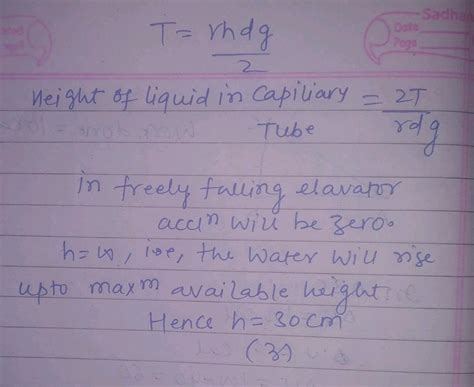 Sadha
Date
Page
T = rhdg/2
Height of liquid in Capiliary Tube = 2T/rdg
in freely falling elavator
accl^n will be zero.
h=∞, i.e, the water will rise
upto max^m available height.
Hence h = 30cm
(3)